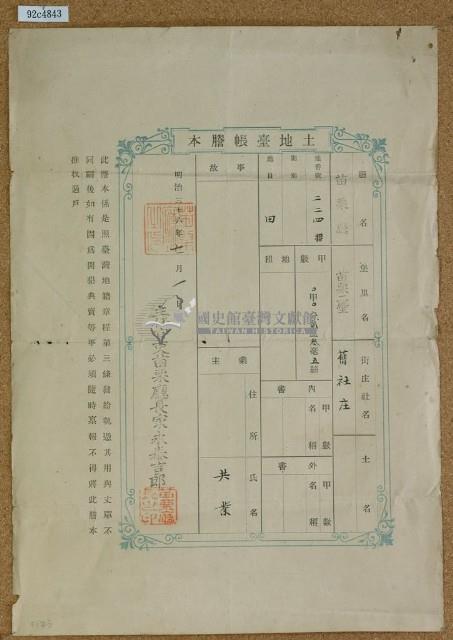 92c4843
土地臺帳謄本
廳名
苗栗廳
堡里名
苗栗一堡
街庄社名
舊社庄
土名
地番號
二二四番
地目
田
甲數
地租
內書
甲數
名稱
外書
甲數
名稱
事故
業主
住所
氏名
共業
明治三十六年七月一日
苗栗廳長家永泰吉郎
國史館臺灣文獻館
TAIWAN HISTORICA
此謄本係是照臺灣地籍章程第三條發給執憑其用與丈單不
同嗣後如有因爲開墾典賣等事必須隨時稟報不得將此謄本
推收過戶